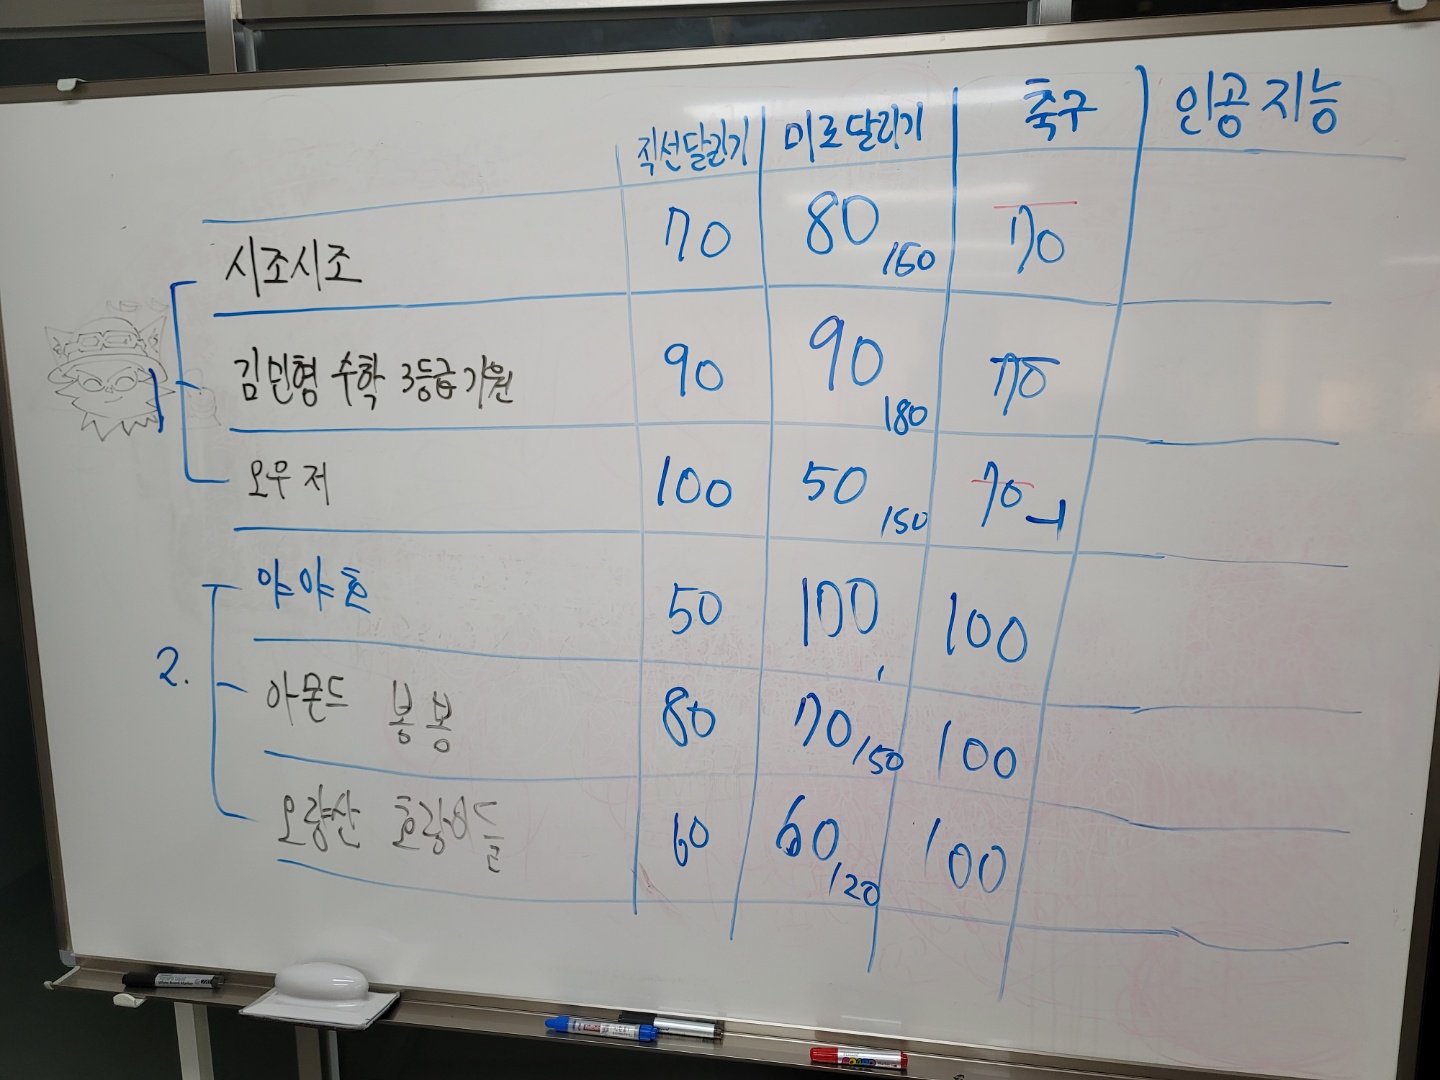 직선달리기 미로달리기 축구 인공지능
시조시조 70 80 150 70
김민형 수학 3등급 기원 90 90 180 70
오우저 100 50 150 70
야야호 50 100 100
2.
아몬드 봉봉 80 70 150 100
오량산 호랑이들 60 60 120 100